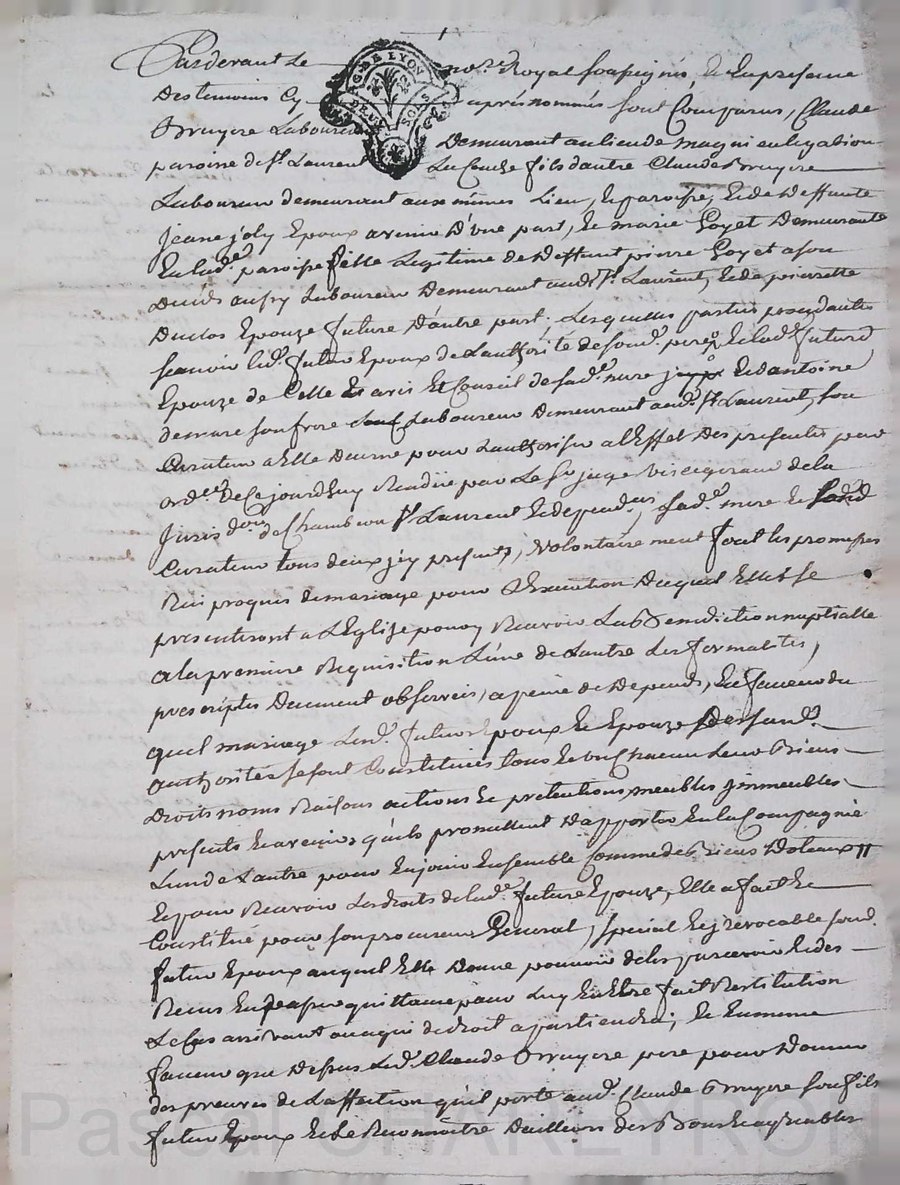 Pardevant Le no.re Royal soussigné, Et En presence
G. DE LYON
DEUX SOLS
Des temoins Cy aprés nommés sont Comparus, Claude
Bruyere Laboureur Demeurant au lieu de magni
paroisse de St. Laurent fils d'autre Claude Bruyere
Laboureur demeurant aux mêmes Lieu, Et paroisse, Et de Deffunte
jeane joly Epoux avenir D'une part, Et marie Goyet Demeurante
En lad.e paroisse fille Legitime de Deffunt pierre Goyet a son
Decés Laboureur Demeurant aud. St. Laurent, Et de pierrette
Duclos Epouze future D'autre part; Lesquelles parties procedantes
sçavoir led. futur Epoux de L'authorité de sond. pere, Et lad. future
Epouze de Celle Et avis Et Conseil de sad. mere Et d'antoine
demare son frere Laboureur Demeurant aud. St. Laurent, son
Curateur a Elle Decerné pour L'authoriser a l'Effet Des presentes par
ord.ce De Ce jourd'huy Rendüe par Le Sr. juge de la
jurisd.on de Chambeon St. Laurent Et depend.es, sad. mere Et
Curateur tous deux jcy presents, volontairement font les promesses
Reciproques de mariage pour L'Execution Duquel Elles Se
presenteront a L'Eglise pour y Recevoir La Benediction nuptialle
a la premiere Requisition L'une de L'autre Les formalités
prescriptes Duement observeés, a peine de Depends, En faveur du
quel mariage Lesd. futurs Epoux Et Epouze
authorités se sont Constitués tous Et un Chacun Leurs Biens
Droits noms Raisons actions Et pretentions meubles jmmeubles
presents Et avenir qu'ils promettent D'apporter En la Compagnie
L'un de L'autre pour En jouir Ensemble Comme de Biens Dotaux
Et pour Recevoir Les droits de lad.e future Epouze, Elle a fait Et
Constitué pour son procureur General, special Et jrrevocable sond.
futur Epoux auquel Elle Donne pouvoir de les percevoir Et des
Receus En passer quittance pour Luy En Etre fait Restitution
Le Cas arrivant ou a qui de droit apartiendra; Et En meme
faveur que Dessus Led. Claude Bruyere pere pour Donner
des preuves de L'affection qu'il porte aud. Claude Bruyere son fils
futur Epoux Et Le Reconnaître D'ailleurs des Bons Et agreables
Pascal CHAREYRON